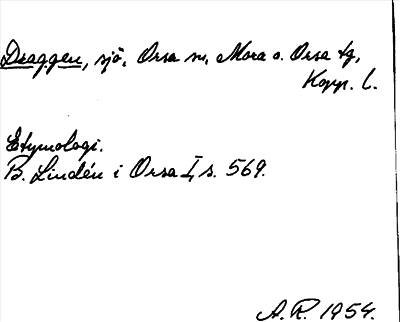 Draggen, sjö, Orsa sn, Mora o. Orsa tg,
Kopp. l.
Etymologi.
B. Lindén i Orsa I, s. 569.
A. R. 1954.